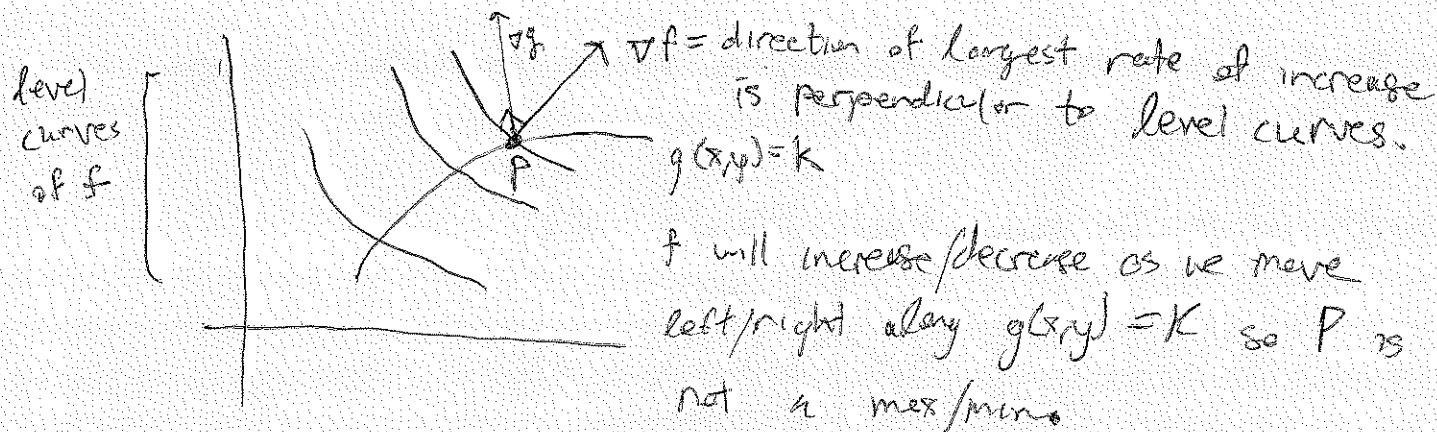 level
curves
of f
∇g
∇f = direction of largest rate of increase
is perpendicular to level curves.
P
g(x,y)=k
f will increase/decrease as we move
left/right along g(x,y)=K so P is
not a max/min.